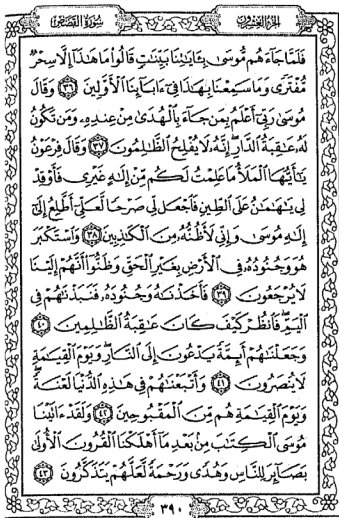 الجزء العشرون سورة القصص
فَلَمَّا جَآءَهُم مُّوسَىٰ بِـَٔايَٰتِنَا بَيِّنَٰتٍ قَالُوا۟ مَا هَٰذَآ إِلَّا سِحْرٌ
مُّفْتَرًى وَمَا سَمِعْنَا بِهَٰذَا فِىٓ ءَابَآئِنَا ٱلْأَوَّلِينَ ٣٦ وَقَالَ
مُوسَىٰ رَبِّىٓ أَعْلَمُ بِمَن جَآءَ بِٱلْهُدَىٰ مِنْ عِندِهِۦ وَمَن تَكُونُ
لَهُۥ عَٰقِبَةُ ٱلدَّارِ إِنَّهُۥ لَا يُفْلِحُ ٱلظَّٰلِمُونَ ٣٧ وَقَالَ فِرْعَوْنُ
يَٰٓأَيُّهَا ٱلْمَلَأُ مَا عَلِمْتُ لَكُم مِّنْ إِلَٰهٍ غَيْرِى فَأَوْقِدْ
لِى يَٰهَٰمَٰنُ عَلَى ٱلطِّينِ فَٱجْعَل لِّى صَرْحًا لَّعَلِّىٓ أَطَّلِعُ إِلَىٰٓ
إِلَٰهِ مُوسَىٰ وَإِنِّى لَأَظُنُّهُۥ مِنَ ٱلْكَٰذِبِينَ ٣٨ وَٱسْتَكْبَرَ
هُوَ وَجُنُودُهُۥ فِى ٱلْأَرْضِ بِغَيْرِ ٱلْحَقِّ وَظَنُّوٓا۟ أَنَّهُمْ إِلَيْنَا
لَا يُرْجَعُونَ ٣٩ فَأَخَذْنَٰهُ وَجُنُودَهُۥ فَنَبَذْنَٰهُمْ فِى
ٱلْيَمِّ فَٱنظُرْ كَيْفَ كَانَ عَٰقِبَةُ ٱلظَّٰلِمِينَ ٤٠
وَجَعَلْنَٰهُمْ أَئِمَّةً يَدْعُونَ إِلَى ٱلنَّارِ وَيَوْمَ ٱلْقِيَٰمَةِ
لَا يُنصَرُونَ ٤١ وَأَتْبَعْنَٰهُمْ فِى هَٰذِهِ ٱلدُّنْيَا لَعْنَةً
وَيَوْمَ ٱلْقِيَٰمَةِ هُم مِّنَ ٱلْمَقْبُوحِينَ ٤٢ وَلَقَدْ ءَاتَيْنَا
مُوسَى ٱلْكِتَٰبَ مِنۢ بَعْدِ مَآ أَهْلَكْنَا ٱلْقُرُونَ ٱلْأُولَىٰ
بَصَآئِرَ لِلنَّاسِ وَهُدًى وَرَحْمَةً لَّعَلَّهُمْ يَتَذَكَّرُونَ ٤٣
٣٩٠